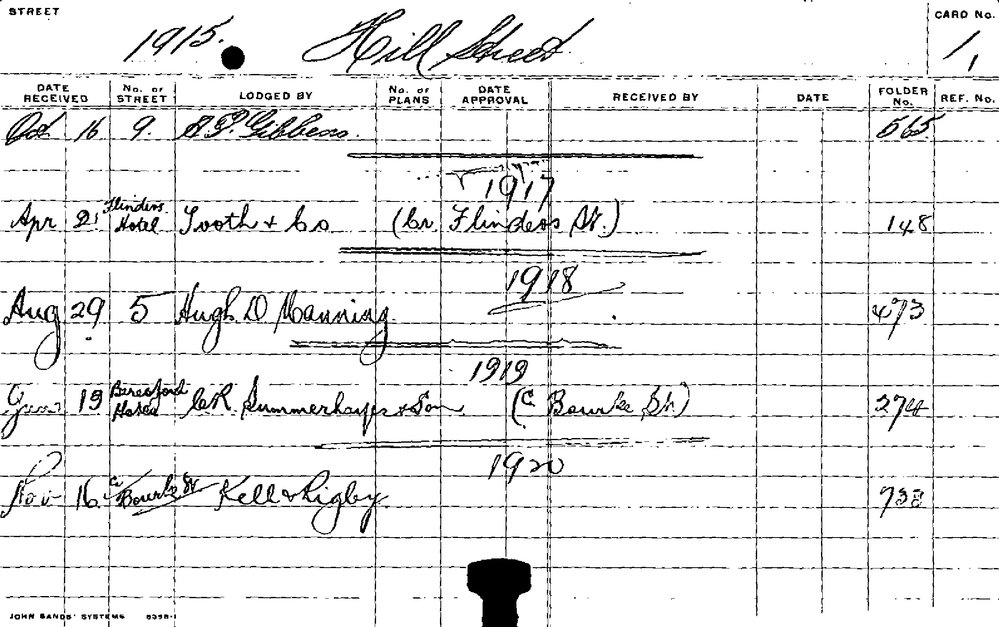 STREET
1915. Hill Street
CARD No.
1,
DATE RECEIVED No. of STREET LODGED BY No. of PLANS DATE APPROVAL RECEIVED BY DATE FOLDER No. REF. No.
Oct 16 9. Gibbens. 565
1917
Apr 21 Flinders Hotel Tooth & Co (Cr Flinders St.) 148
1918
Aug 29 5 Hugh D Manning 473
1919
19 Beresford Hotel C.R. Summerhayes & Son (C Bourke St.) 274
1920
Nov 16 c Bourke St Kell & Rigby 738
JOHN SANDS' SYSTEMS